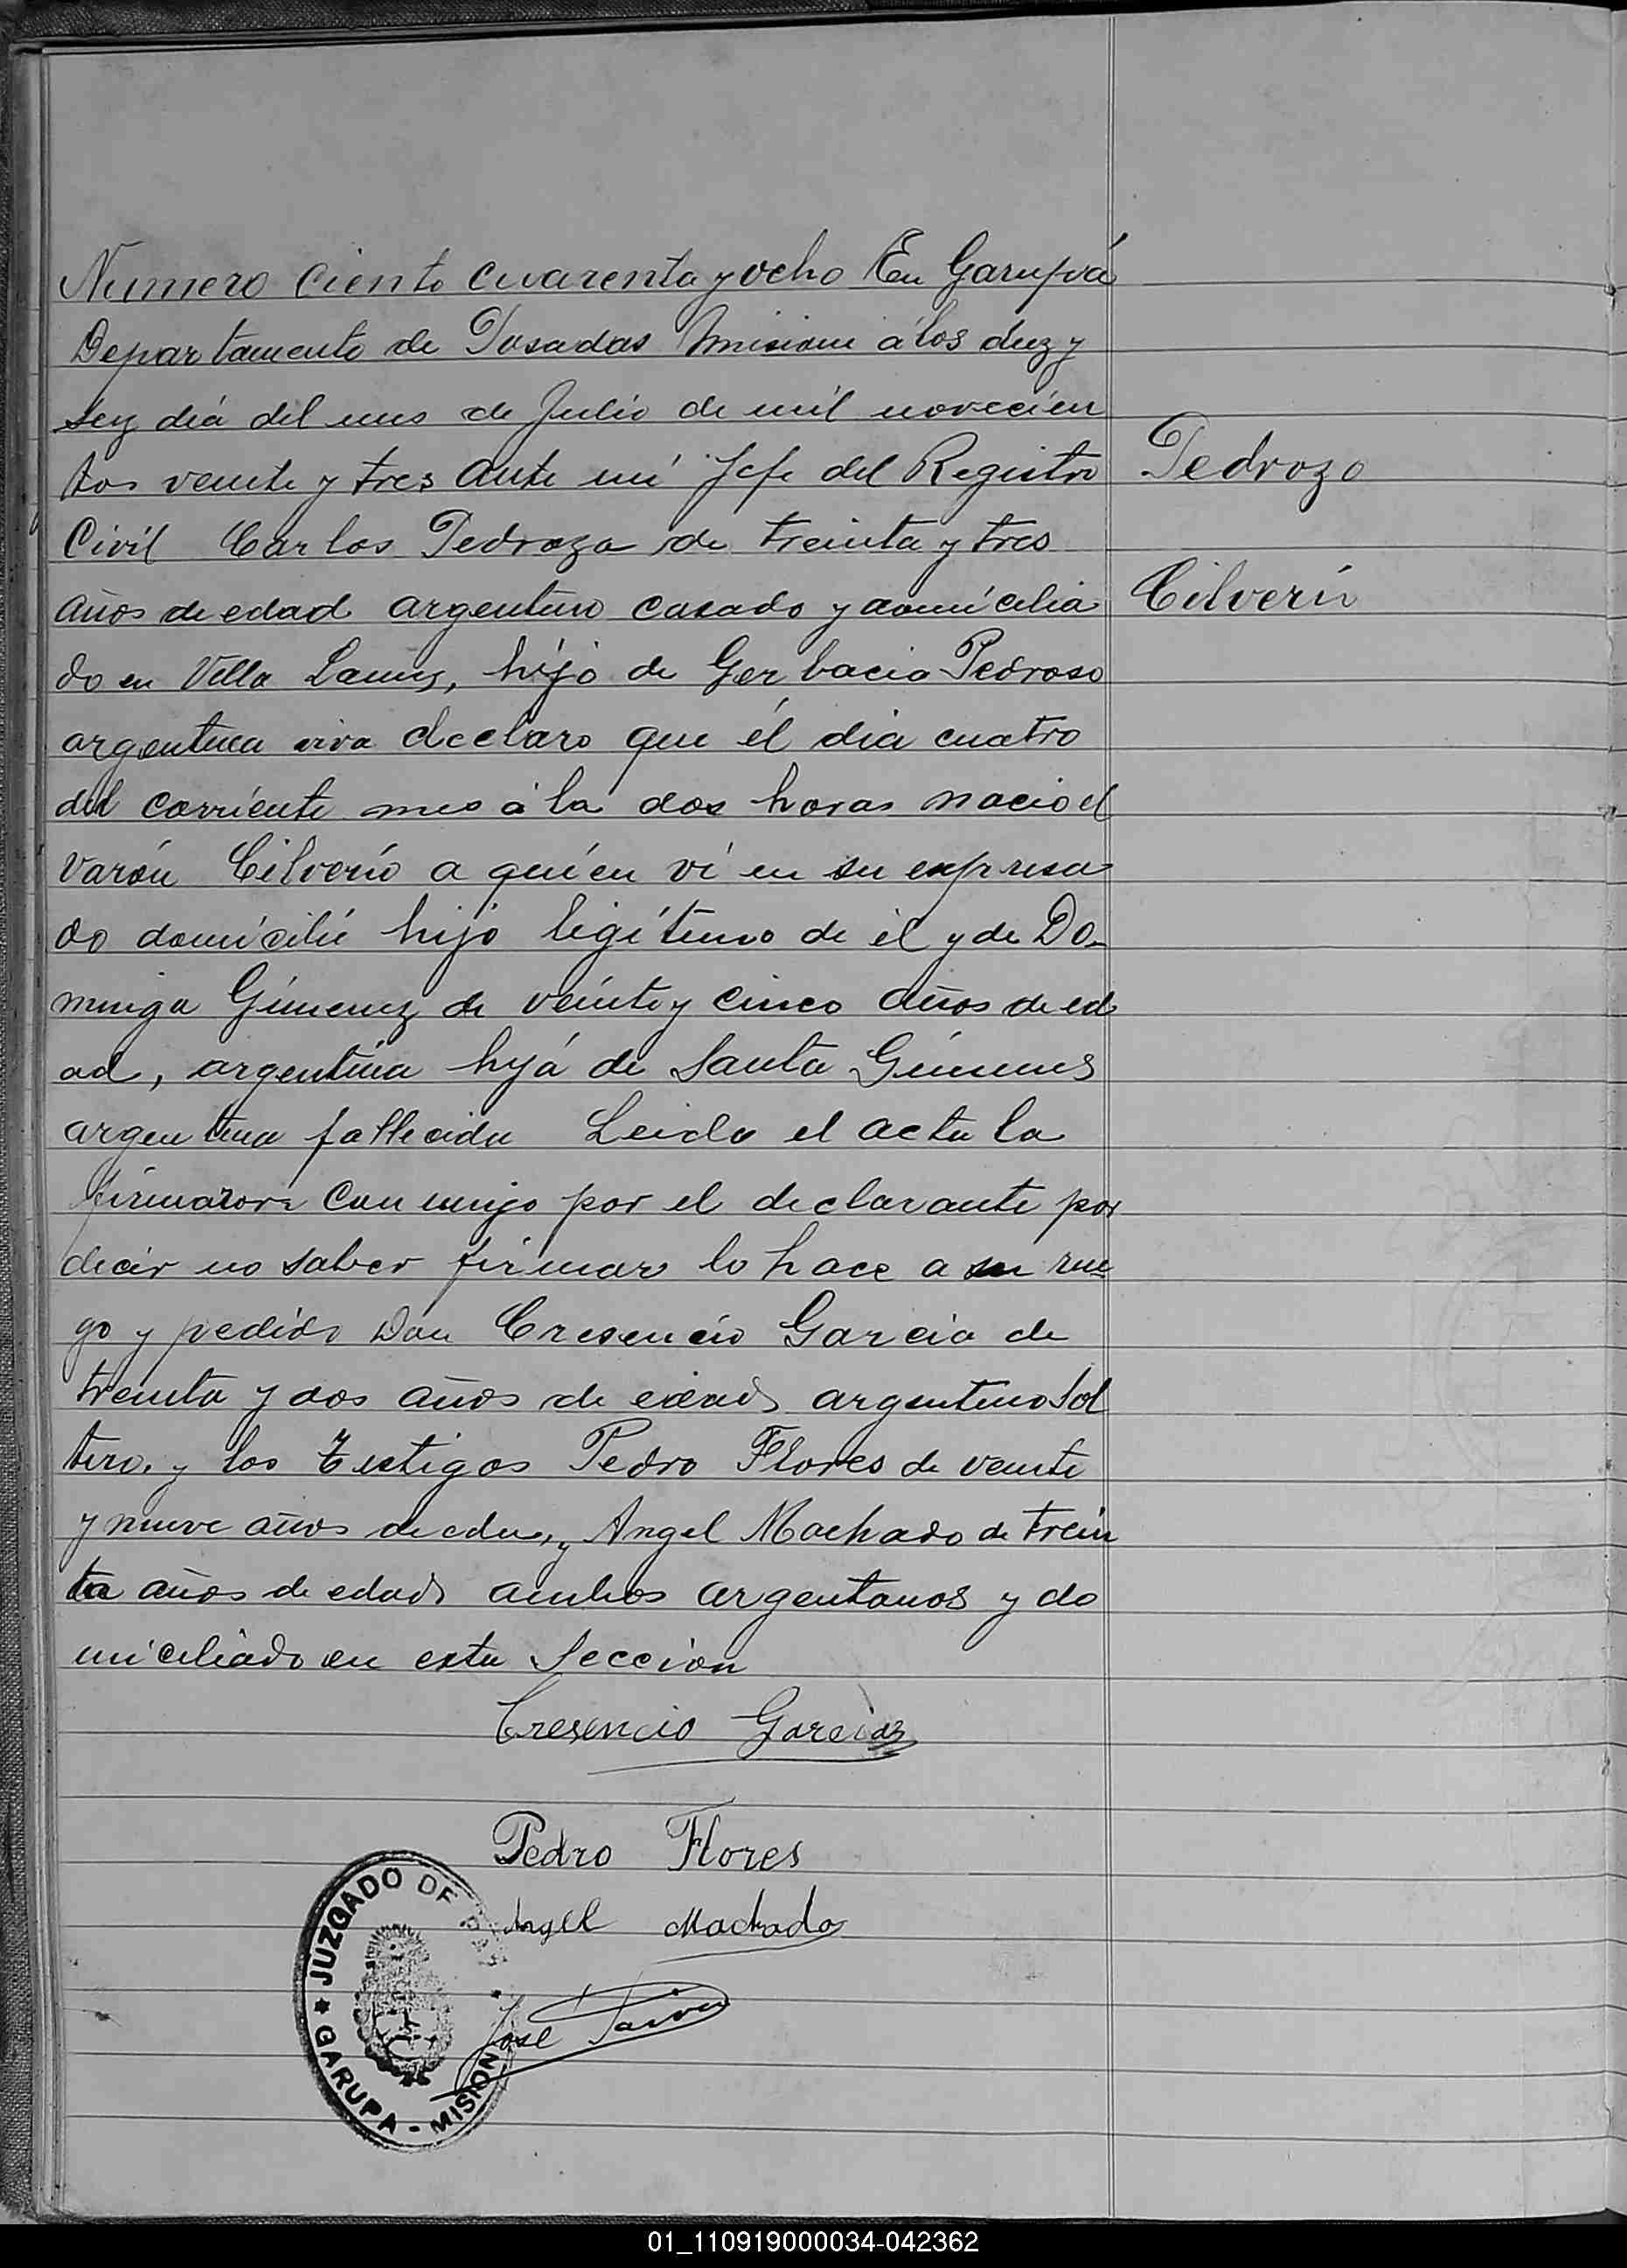 Numero Ciento Cuarenta y ocho En Garupá
Departamento de Posadas Misione á los diez y
seis diá del mes de Julio de mil novecien
tos veinte y tres Ante mi Jefe del Registro
Civil Carlos Pedroza de treinta y tres
años de edad argentino casado y domicilia
do en Villa Lanus, hijo de Gerbacia Pedroso
argentina viva declaro que él dia cuatro
del corriente mes á la dos horas nacio el
varón Cilverio a quien vi en su expresa
do domicilió hijo legítimo de él y de Do-
minga Gimenez de veinte y cinco años de ed
ad, argentina hija de Santa Gimenes
argentina fallecida Leida el acta la
firmaron conmigo por el declarante por
decir no saber firmar lo hace a su rue
go y pedido Don Cresencio Garcia de
treinta y dos años de edad argentino Sol
tero. y los Testigos Pedro Flores de veinte
y nueve años de eda, y Angel Machado de trein
ta años de edad ambos argentanos y do
miciliado en esta Seccion
Pedrozo
Cilverio
Cresencio Garcia
Pedro Flores
Angel Machado
José
JUZGADO DE PAZ
GARUPA - MISION
01_110919000034-042362